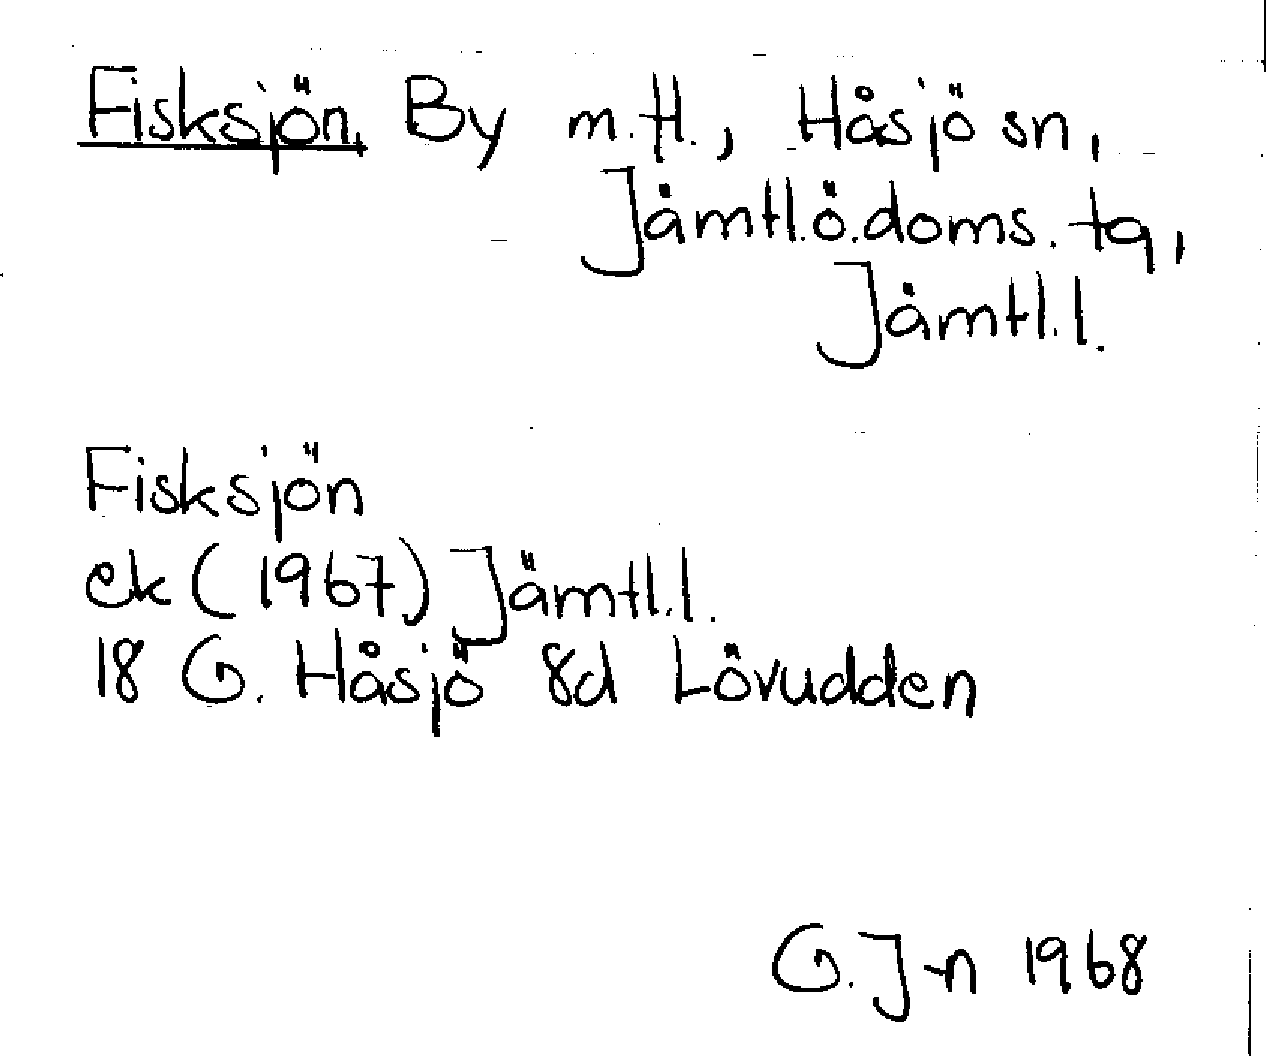 Fisksjön, By m.fl., Håsjö sn,
Jämtl.ö.doms.tg,
Jämtl.l.
Fisksjön
ek (1967) Jämtl.l.
18 G. Håsjö 8d Lövudden
G. J-n 1968